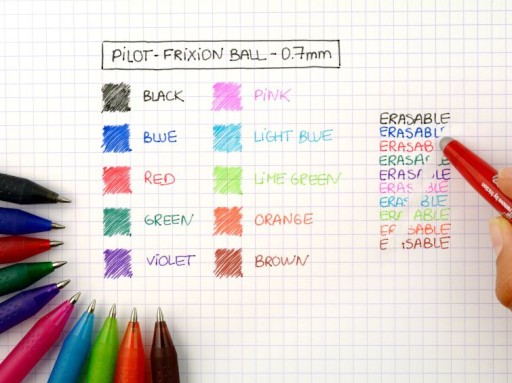 PiLOT - FRiXiON BALL - 0.7mm
BLACK
BLUE
RED
GREEN
ViOLET
PiNK
LiGHT BLUE
LiME GREEN
ORANGE
BROWN
ERASABLE
ERASABL
ERASAB
ERASA
ERAS
ERAS BLE
ERA BLE
ER ABLE
ER SABLE
E SABLE